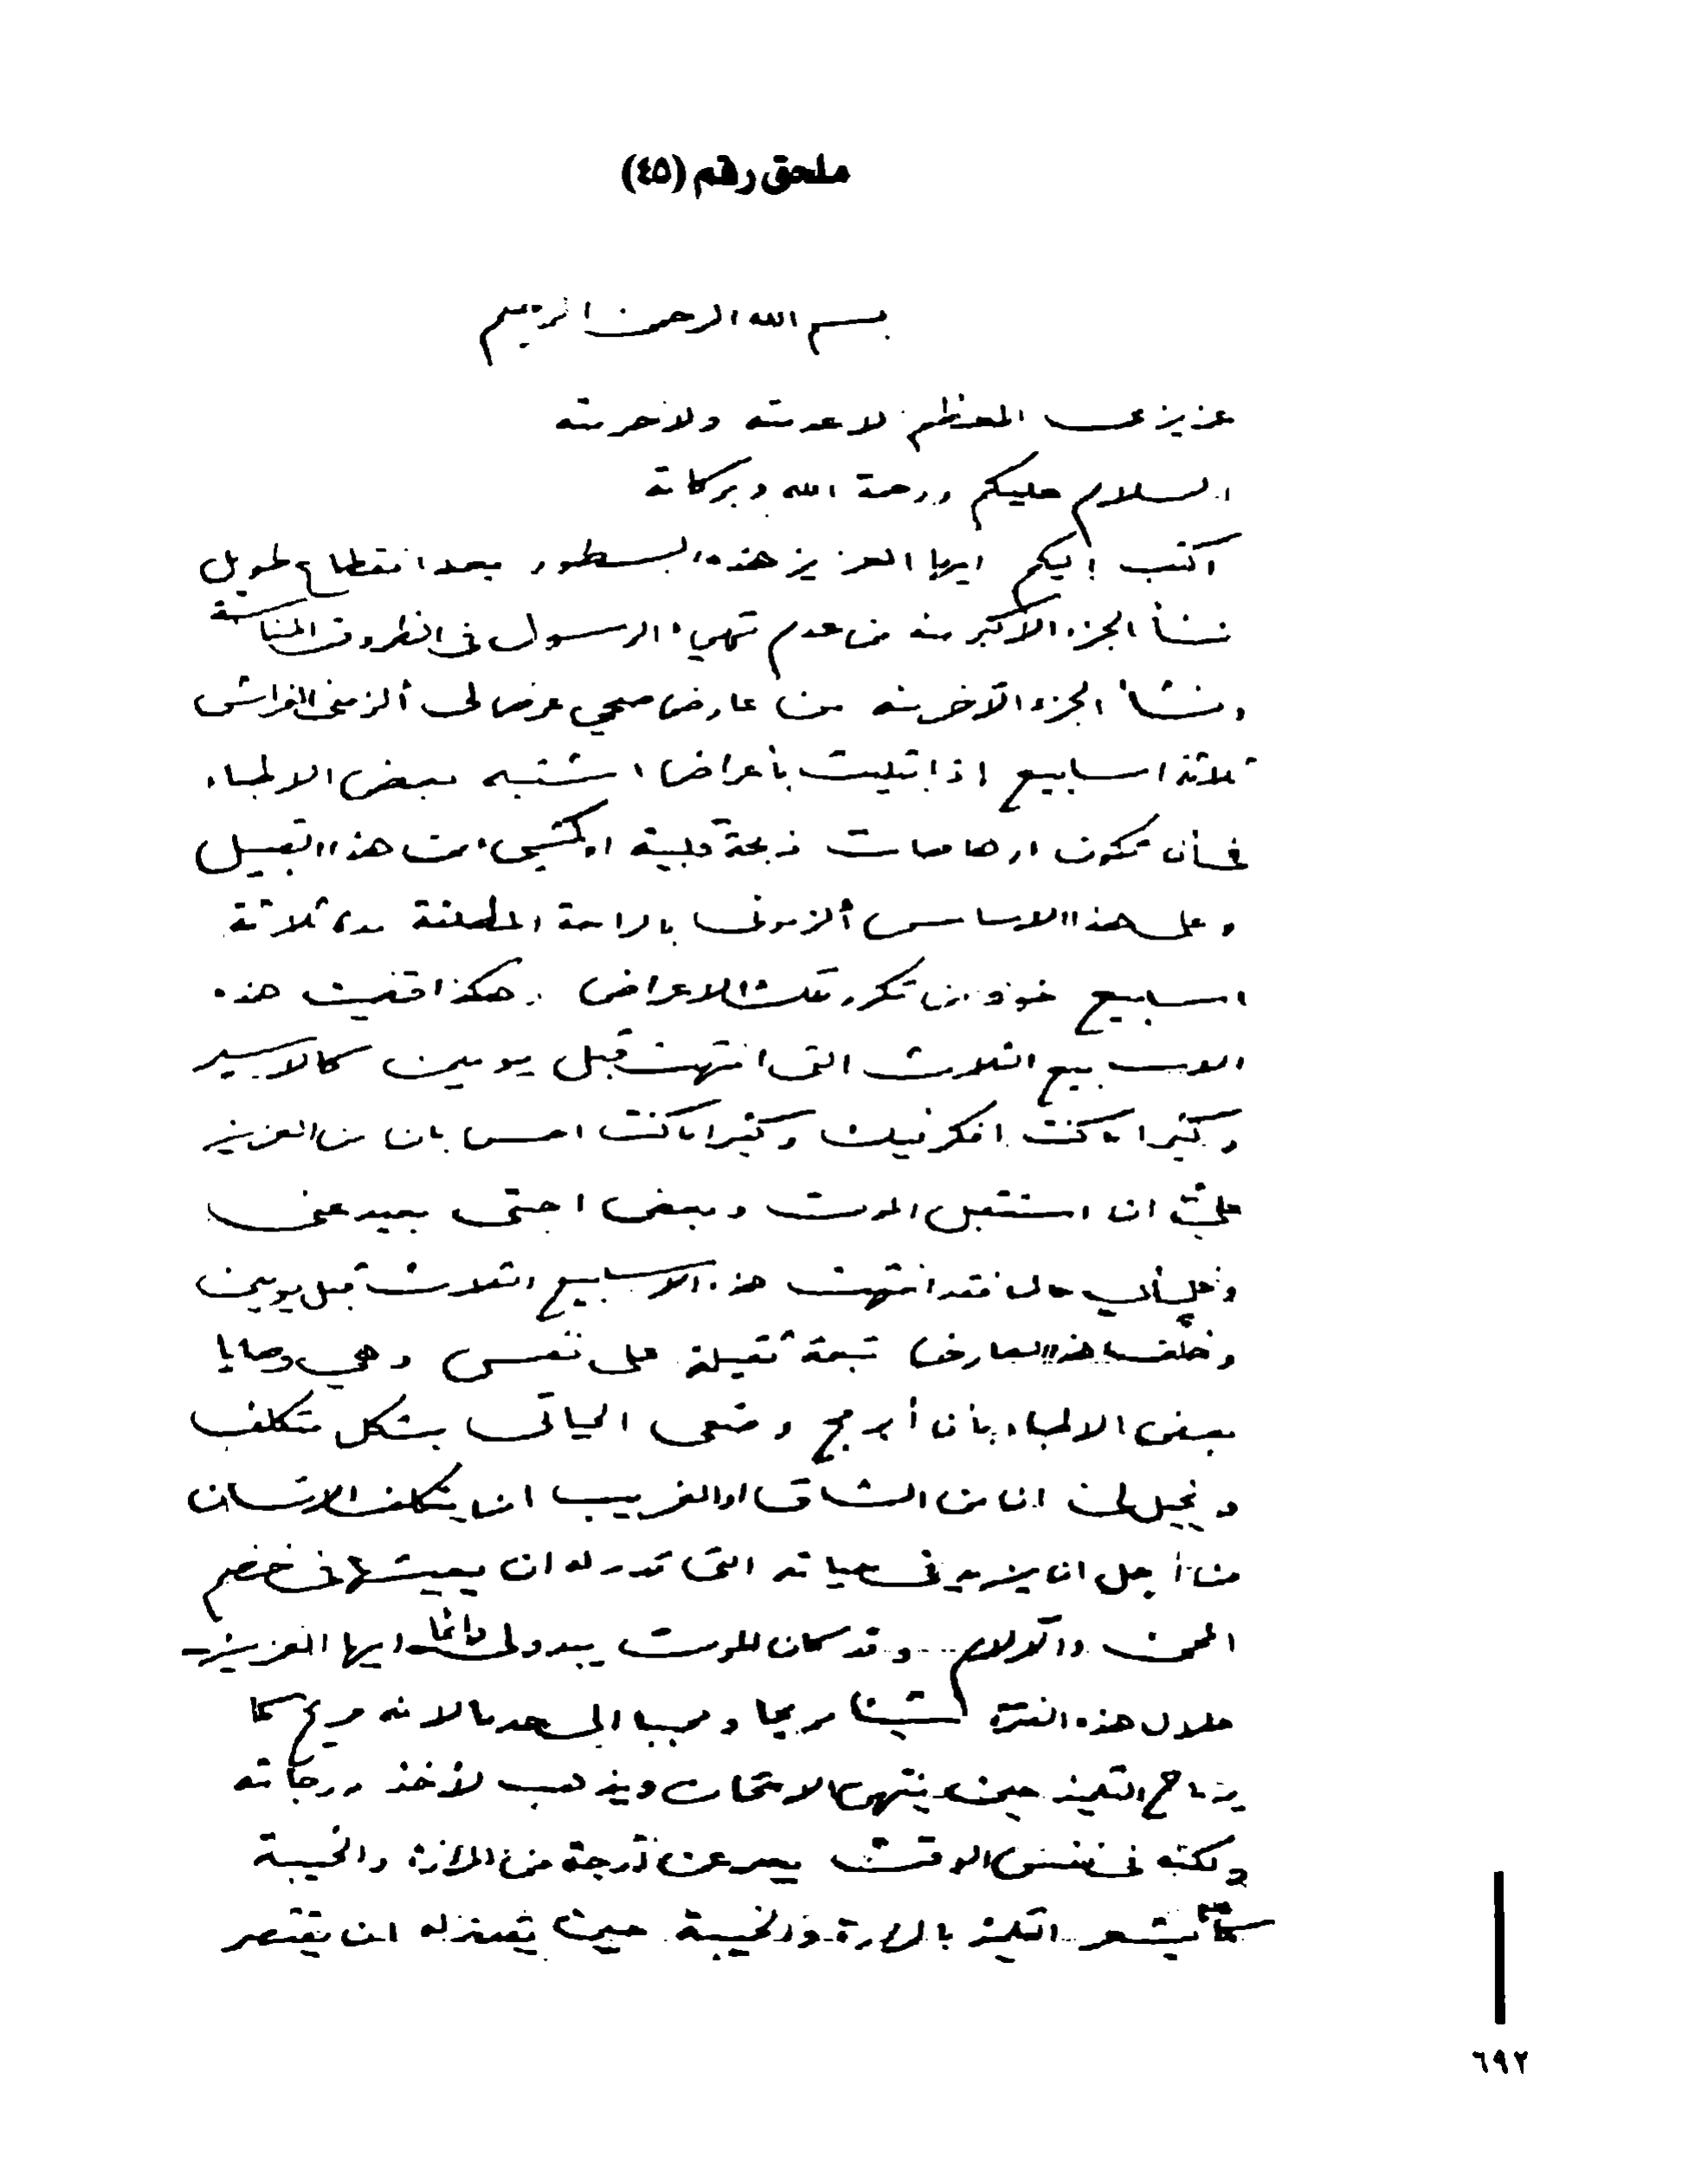 ملحق رقم (٤٥)
بسم الله الرحمن الرحيم
عزيزي المعظم لا عدمته ولا حرمته
السلام عليكم ورحمة الله وبركاته
اكتب إليكم ايها العزيز هذه السطور بعد انقطاع طويل
نشأ الجزء الاكبر منه من عدم تهيء الرسول في الظروف المناسبة
ونشأ الجزء الآخر منه من عارض صحي عرض لي ألزمني الفراش
ثلاثة اسابيع إذ ابتليت بأعراض اشتبه بعض الاطباء
في أن تكون ارهاصات ذبحة قلبية او شيء من هذا القبيل
وعلى هذا الاساس ألزموني بالراحة المطلقة مدة ثلاثة
اسابيع خوفا من تكرر تلك الاعراض وهكذا قضيت هذه
الاسابيع الثلاث التي انتهت قبل يومين كالاسير
وكثيرا ما كنت افكر فيك وكثيرا ما كنت احس بان من العزيز
عليّ ان استقبل الموت وبعض احبتي بعيد عني
وعلى أي حال فقد انتهت هذه الاسابيع الثلاث قبل يومين
وخلف هذا العارض تبعة ثقيلة على نفسي وهي وصايا
بعض الاطباء بأن أبرمج وضعي الحياتي بشكل متكلف
ويخيل لي ان من الشاق او الغريب ان يتكلف الانسان
من أجل ان يزيد في حياته التي قدر له ان يعيشها في خضم
المحن والآلام .... وقد كان الموت يبدو لي دائما ايها العزيز -
خلال هذه الفترة شيئا مريحا ومحببا الى حد ما لانه مريح كما
يرتاح التلميذ حين ينتهي الامتحان ويذهب لأخذ درجاته
ولكنه في نفس الوقت يعبر عن درجة من المرارة والخيبة
كما يشعر التلميذ بالمرارة والخيبة حين يقدر له ان يقتصر
٦٩٢